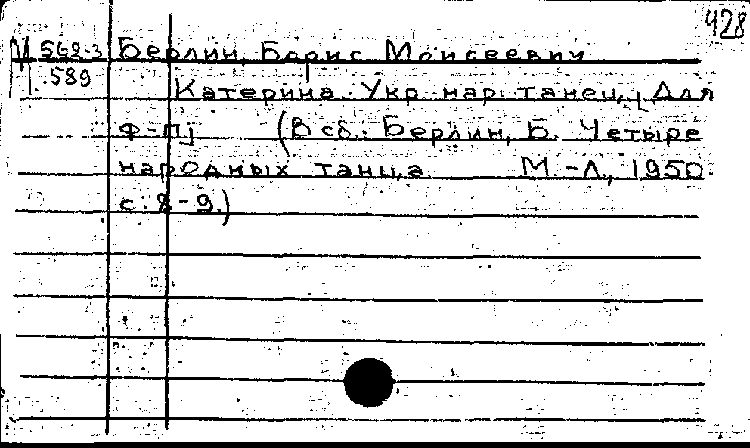 428
М 562-3 Берлин, Борис Моисеевич
589
Катерина. Укр. нар. танец. [Для
ф-п] (В сб.: Берлин, Б. Четыре
народных танца. М.-Л., 1950.
с. 8-9.)